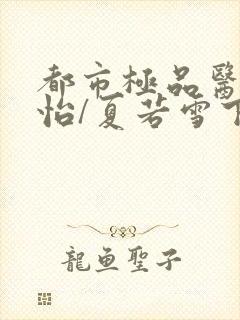 都市極品醫
怡/夏若雪下
龍魚聖子